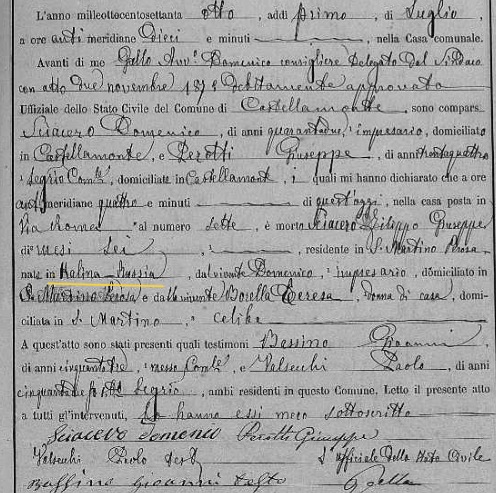 L'anno milleottocentosettanta otto, addì primo, di Luglio
a ore anti meridiane dieci e minuti, nella Casa comunale.
Avanti di me Gallo Avv. Domenico consigliere Delegato dal Sindaco
con atto due novembre 187 debitamente approvato
Uffiziale dello Stato Civile del Comune di Castellamonte, sono compars
Sciacero Domenico, di anni quarantadue, impresario, domiciliato
in Castellamonte, e Perotti Giuseppe, di anni trentaquattro
Segrio Comle, domiciliato in Castellamonte, i quali mi hanno dichiarato che a ore
anti meridiane quattro e minuti di quest'oggi, nella casa posta in
Via Roma al numero sette, è morto Sciacero Filippo Giuseppe
di mesi sei, residente in S. Martino Perosa
nato in Kalina - Russia, dal vivente Domenico, impresario domiciliato in
S. Martino Perosa e dalla vivente Borella Teresa, donna di casa, domi-
ciliata in S. Martino, celibe
A quest'atto sono stati presenti quali testimoni Bessino Gioanni
di anni cinquantatre, messo Comle, e Valsecchi Paolo, di anni
cinquanta Segrio, ambi residenti in questo Comune. Letto il presente atto
a tutti gl'intervenuti, lo hanno essi meco sottoscritto
Sciacero Domenico Perotti Giuseppe
Valsecchi Paolo test
L'uffiziale dello Stato Civile
Gioanni testo Gallo